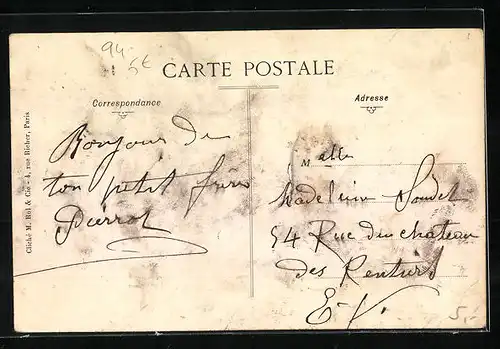 94
5€
CARTE POSTALE
Correspondance
Adresse
Bonjour de
ton petit frère
Pierrot
Melle
Madeleine
54 Rue du chateau
des Rentiers
E.V.
5,-
Cliché M. Rol & Cie - 4, rue Richer, Paris